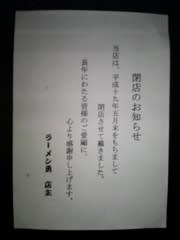 閉店のお知らせ
当店は、平成十九年五月末をもちまして
閉店させて戴きました。
長年にわたる皆様のご愛顧に、
心より感謝申し上げます。
ラーメン勇 店主